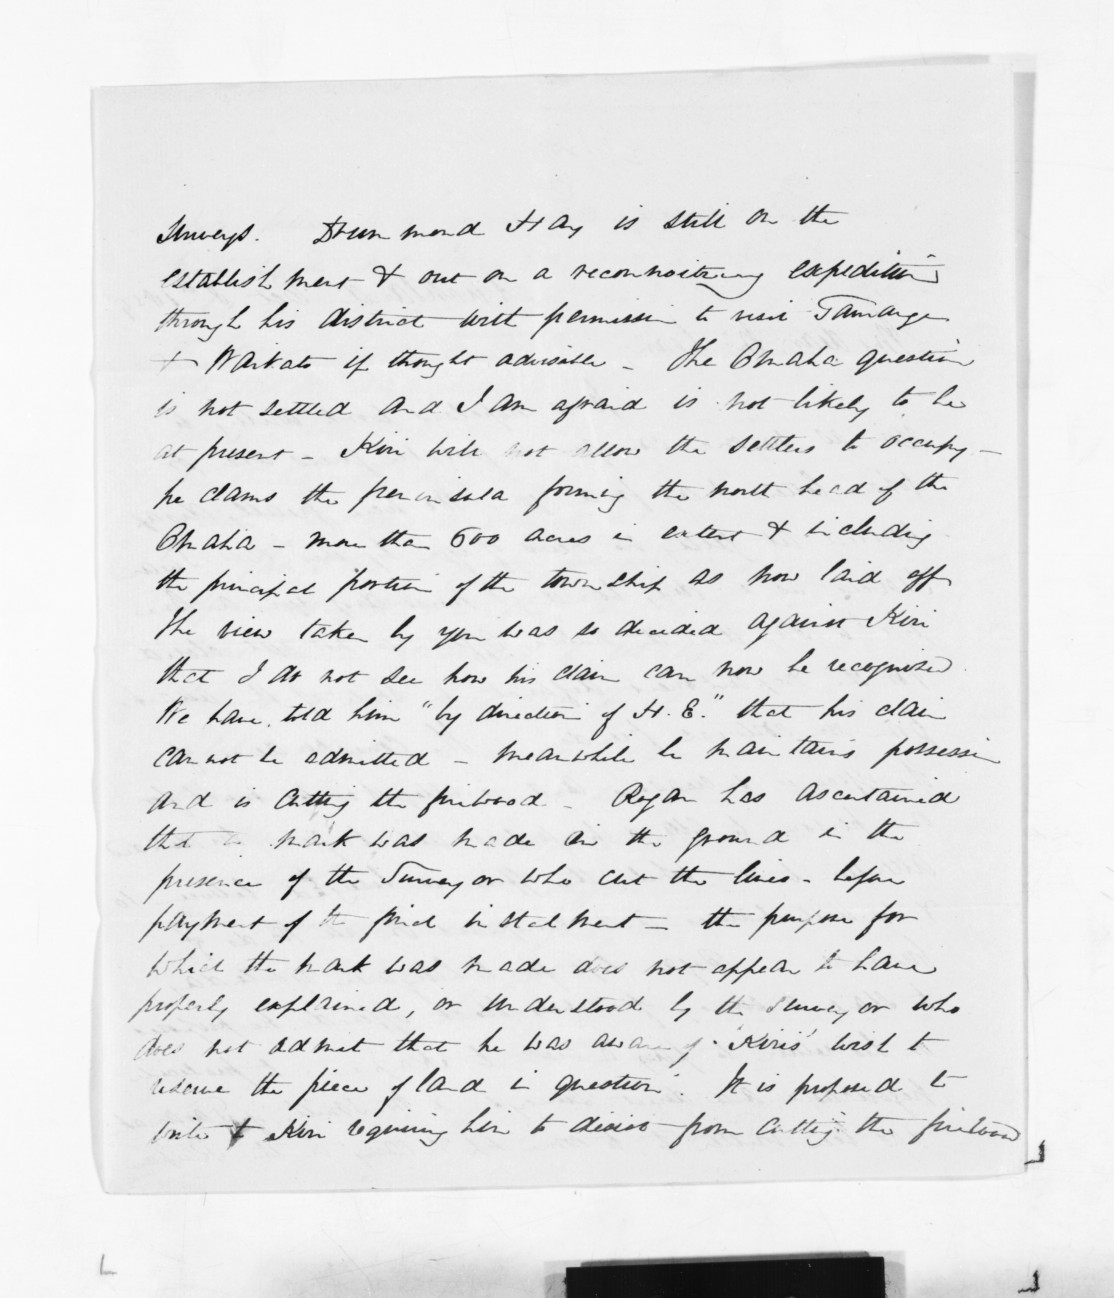 Surveys. Drummond Hay is still on the
establishment & out on a reconnoitring expedition
through his district with permission to visit
& Waikato if thought advisable - The Omaha question
is not settled and I am afraid is not likely to be
at present - Kiri will not allow the settlers to occupy -
he claims the peninsula forming the north head of the
Omaha - more than 600 acres in extent & including
the principal portion of the township as now laid off
The view taken by you was so decided against Kiri
that I do not see how his claim can now be recognised.
We have told him "by direction of H.E." that his claim
cannot be admitted - meanwhile he maintains possession
and is cutting the firewood - Rogan has ascertained
that a mark was made in the ground in the
presence of the Surveyor who cut the lines - before
payment of the final instalment - the purpose for
which the mark was made does not appear to have
properly explained, or understood by the Surveyor who
does not admit that he was aware of 'Kiri's' wish to
reserve the piece of land in question. It is proposed to
write to Kiri requiring him to desist from cutting the firewood